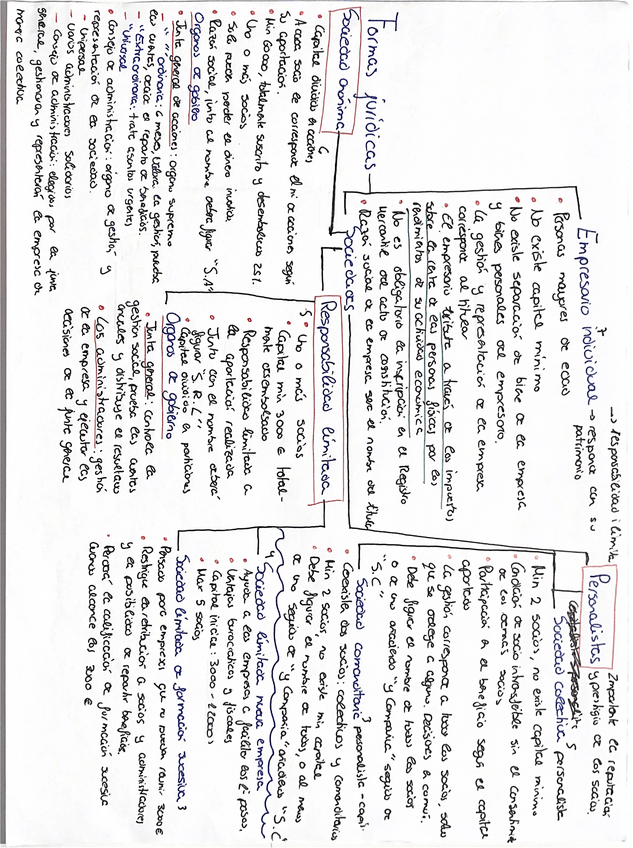 Formas jurídicas
Empresario individual → responde con su
patrimonio
→ responsabilidad ilimite
7
• Personas mayores de edad
• No existe capital mínimo
• No existe separación de bine de la empresa
y bienes personales del empresario,
• La gestión y representación de la empresa
corresponde al titular
• El empresario tributa a través de los impuestos
sobre la renta de las personas físicas, por los
rendimientos de su actividad económica
• No es obligatorio la inscripción en el Registro
Mercantil del acto de constitución,
• Razón social de la empresa será el nombre del titular
Sociedades
Sociedad anónima
6
• Capital dividido en acciones
• A cada socio le corresponde el nº de acciones según
su aportación
• Min 60000, totalmente suscrito y desembolsados 25%
• Uno o más socios
• Solo puede perder el dinero invertido
• Razón social, junto al nombre debe figurar "S.A"
Organos de gobierno
• Junta general de acciones: organo supremo
– " " ordinaria: 6 meses, valora la gestión, prueba
las cuentas, decide el reparto de beneficios,
– "Extraordinaria: trata asuntos urgentes,
– "Universal
• Consejo de administración: órgano de gestión y
representación de la sociedad.
– Unipersonal
– Varios administradores solidarios
– Consejo de administración: elegidos por la junta
general, gestionaran y representaran la empresa de
manera colectiva
Responsabilidad limitada
5
• Uno o más socios
• Capital min 3000 € total-
mente desembolsado
• Responsabilidad limitada a
la aportación realizada
• Junto con el nombre deberá
figurar "S.R.L"
• Capital dividido en participaciones
Organos de gobierno
• Junta general: controla la
gestión social, prueba las cuentas
anuales y distribuye el resultado
• Los administradores: gestión
de la empresa y ejecutar las
decisiones de la junta general
Personalistas
Importante la reputación
y prestigio de los socios.
Sociedad colectiva personalista
5
• Min 2 socios, no existe capital mínimo
• Condición de socio intransferible sin el consentimie
de los demás socios
• Participación en el beneficio según el capital
aportado
• La gestión corresponde a todos los socios, salvo
que se delegue a alguno, Decisiones en común,
• Debe figurar el nombre de todos los socios
o de uno añadiendo "y Compañía" seguido de
"S.C"
• Sociedad comanditaria personalista - capit.
3
• Coexisten dos socios: colectivos y comanditarios
• Min 2 socios, no existe min capital
• Debe figurar el nombre de todos, o al menos
de uno seguido de "y Compañía" añadiendo "S.C"
4
• Sociedad limitada nueva empresa
• Ayuda a las empresas, a facilitar los 1º pasos,
• Ventajas burocráticas y fiscales
• Capital inicial: 3000 -
• Max 5 socios
Sociedad limitada de formación sucesiva 3
• Pensado para empresas que no puedan reunir 3000 €
• Restringe la retribución a socios y administradores
y la posibilidad de repartir beneficios
• Perderá la calificación de formación sucesiva
cuando alcance los 3000 €